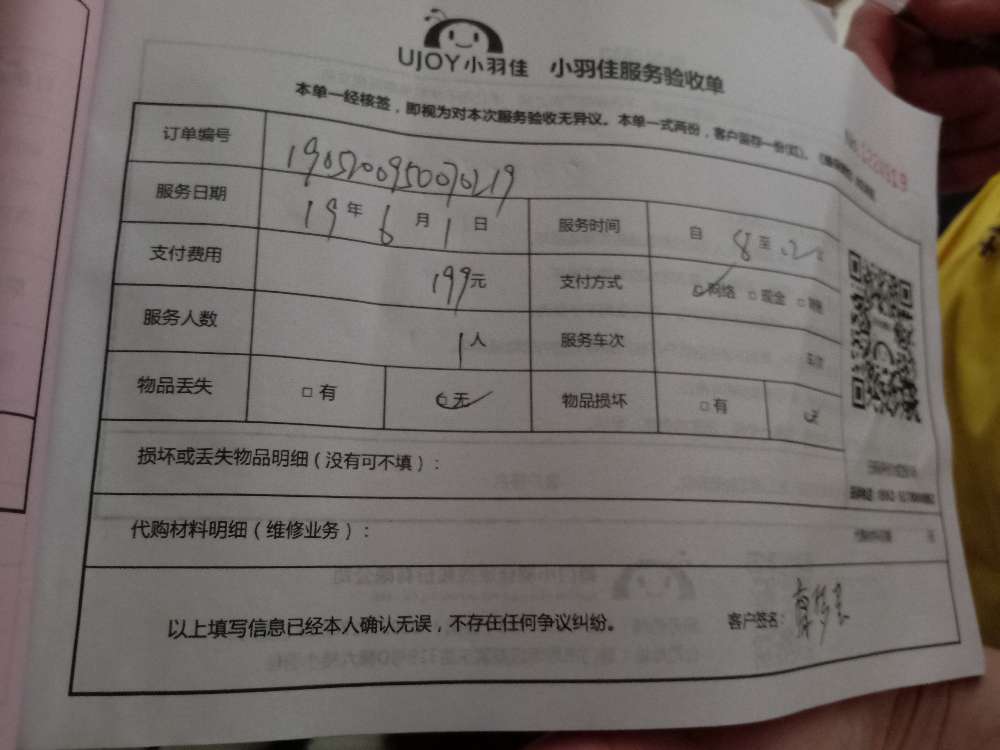 UJOY小羽佳 小羽佳服务验收单
本单一经核签，即视为对本次服务验收无异议。本单一式两份，客户留存一份(红)。
订单编号 1905200950070219
服务日期 19年6月1日 服务时间 自 8 至
支付费用 199元 支付方式 网络 □现金 □
服务人数 1人 服务车次 车次
物品丢失 □有 无 物品损坏 □有 无
损坏或丢失物品明细（没有可不填）：
代购材料明细（维修业务）：
以上填写信息已经本人确认无误，不存在任何争议纠纷。 客户签名：